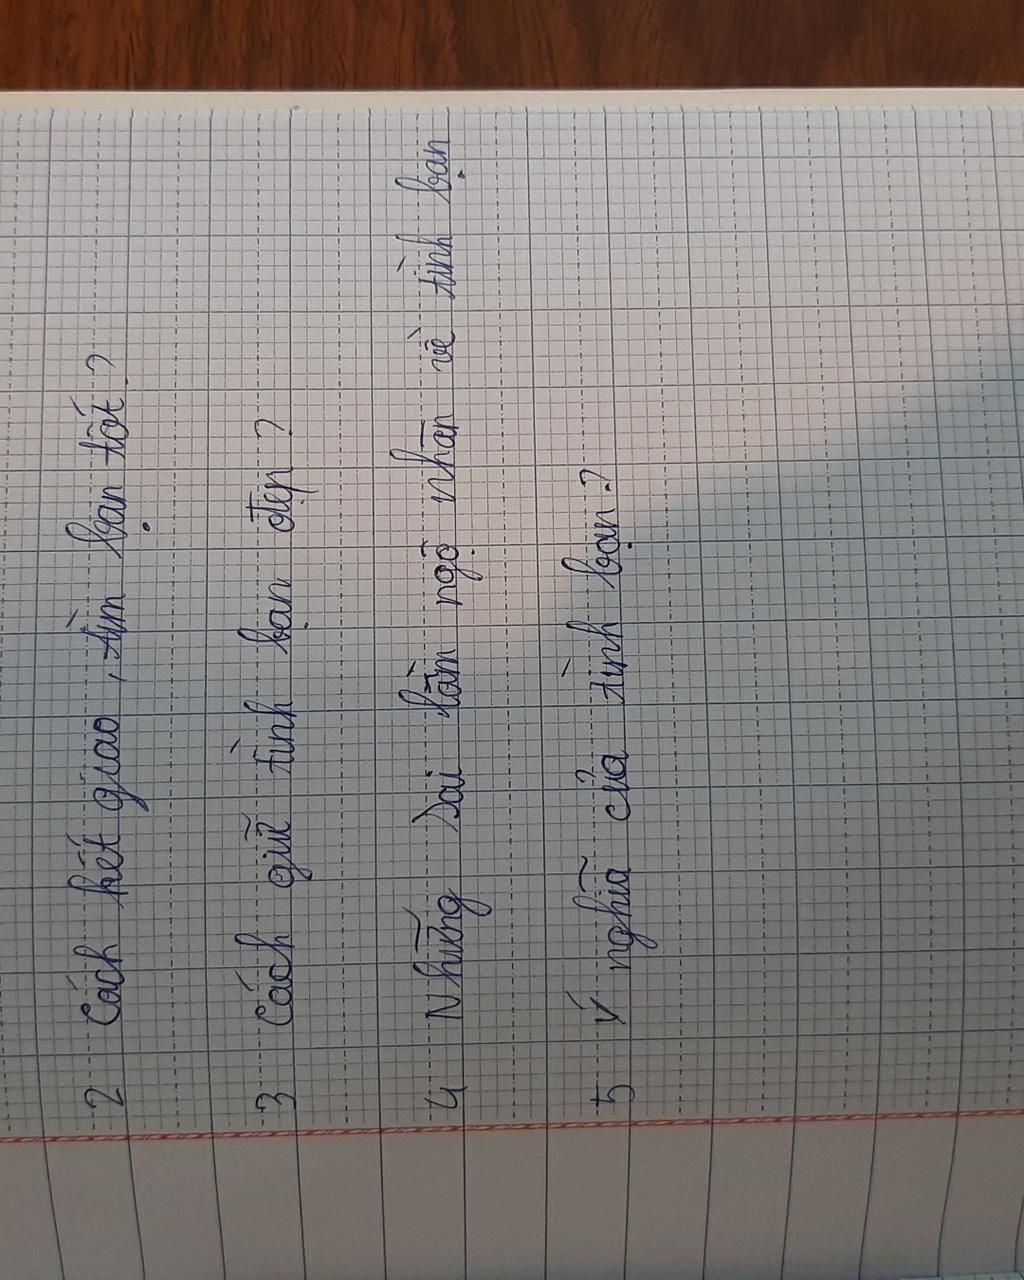 2 Cách kết giao, tìm bạn tốt?
3 Cách giữ tình bạn đẹp?
4 Những sai lầm ngộ nhận về tình bạn
5 Ý nghĩa của tình bạn?